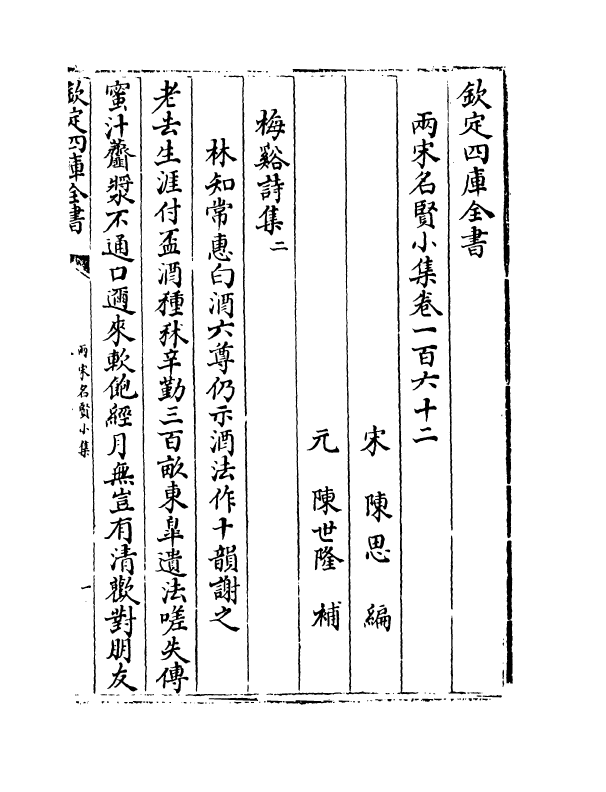 欽定四庫全書
兩宋名賢小集卷一百六十二
宋 陳思 編
元 陳世隆 補
梅谿詩集二
林知常惠白酒六尊仍示酒法作十韻謝之
老去生涯付盃酒種秫辛勤三百畝東臯遺法嗟失傳
蜜汁虀漿不通口邇來軟飽經月無豈有清歡對朋友
欽定四庫全書
兩宋名賢小集
一